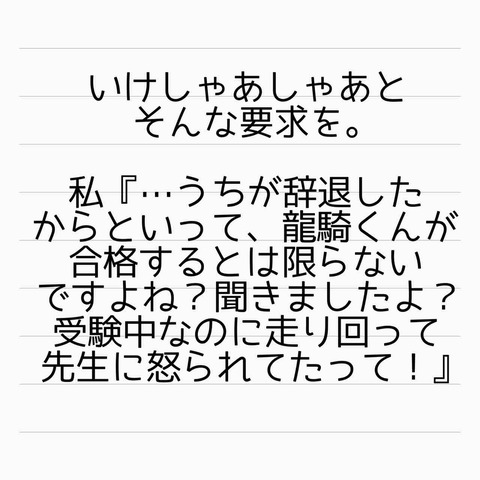 いけしゃあしゃあと
そんな要求を。
私『…うちが辞退した
からといって、龍騎くんが
合格するとは限らない
ですよね？聞きましたよ？
受験中なのに走り回って
先生に怒られてたって！』